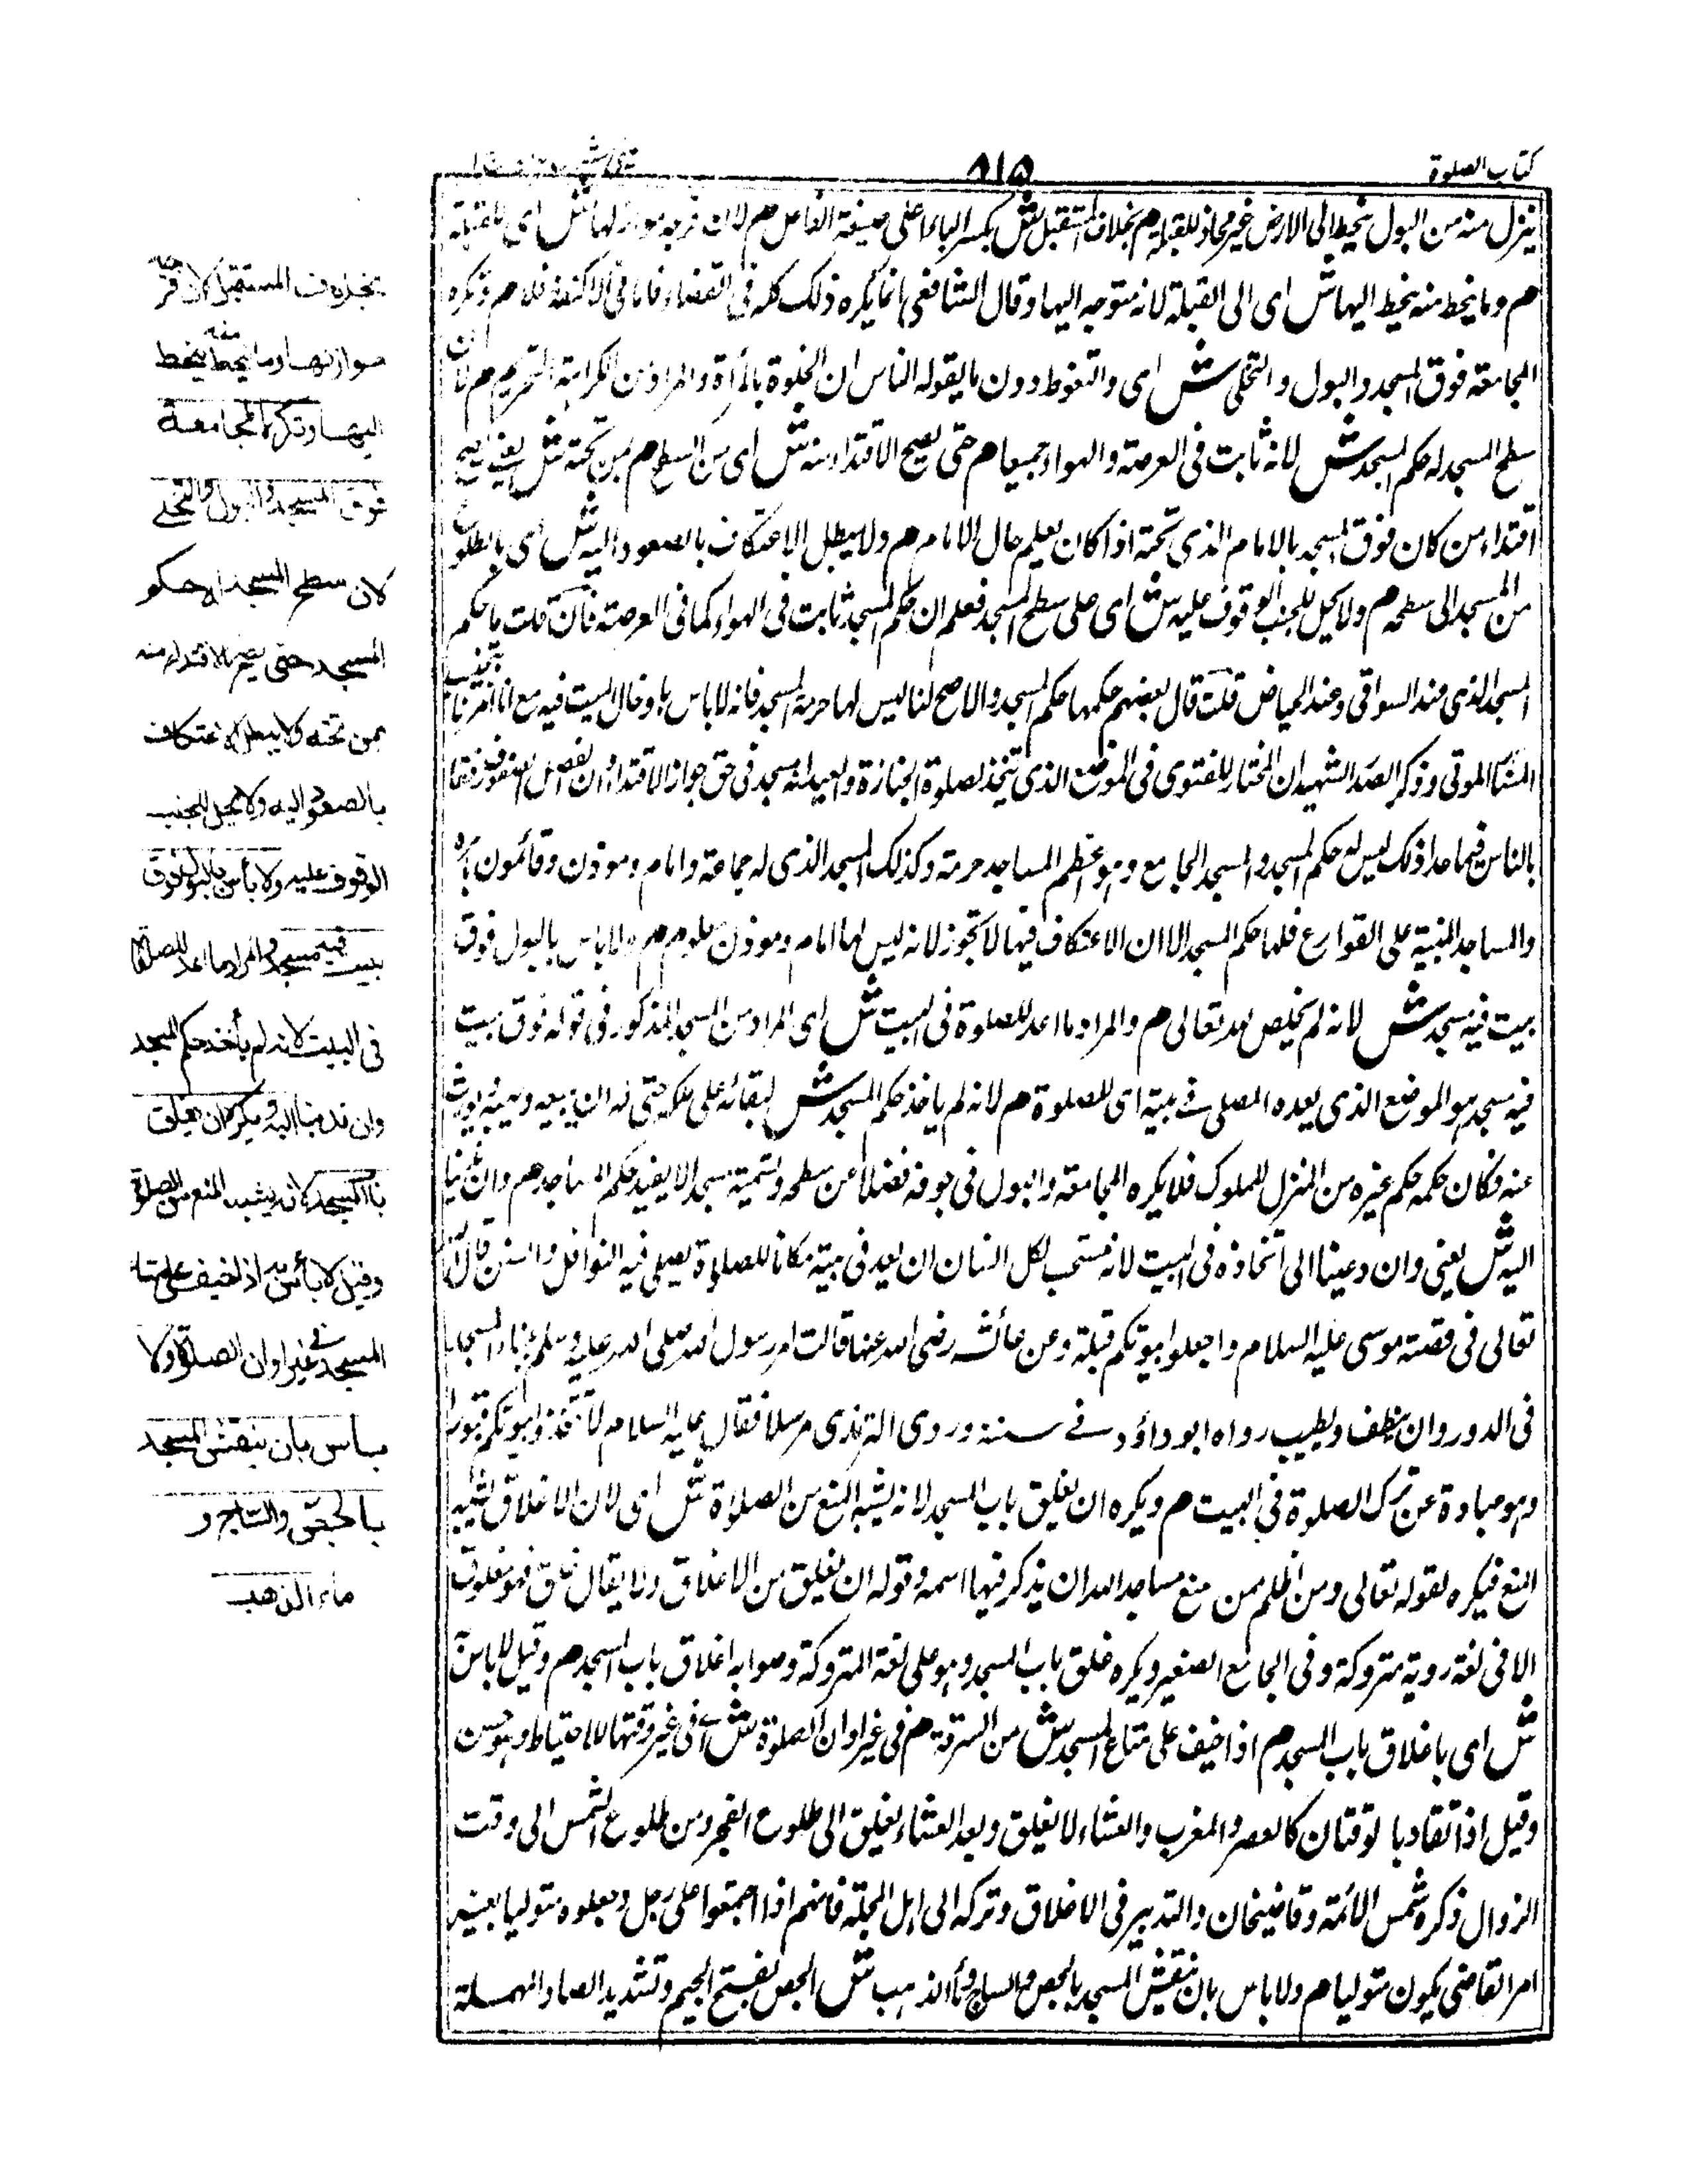 كتاب الصلوة
٨١٥
ينزل منه من البول ينحط الى الارض غير محاذ للقبلة م بخلاف المستقبل ش بكسر الباء على صيغة الفاعل م لان فرجه مواز لها ش اى للقبلة
م وما ينحط منه ينحط اليها ش اى الى القبلة لانه متوجه اليها وقال الشافعى انما يكره ذلك كله فى الفضاء فاما فى الاكنفة فلا م وتكره
المجامعة فوق المسجد والبول والتخلى ش اى والتغوط دون ما يقوله الناس ان الخلوة بالمرأة والمراد من الكراهة التحريم م لان
سطح المسجد له حكم المسجد ش لانه ثابت فى العرصة والهواء جميعا م حتى يصح الاقتداء منه ش اى من السطح م بمن تحته ش يعنى يصح
اقتداء من كان فوق المسجد بالامام الذى تحته اذا كان يعلم حال الامام م ولا يبطل الاعتكاف بالصعود اليه ش اى بالطلوع
من المسجد الى سطحه م ولا يحل للجنب الوقوف عليه ش اى على سطح المسجد فعلم ان حكم المسجد ثابت فى الهواء كما فى العرصة فان قلت ما حكم
المسجد الذى عند السواقى وعند الحياض قلت قال بعضهم حكمها حكم المسجد والاصح لنا ليس لها حرمة المسجد فانه لا باس بادخال الميت فيه مع انا امرنا بتجنيب
المساجد الموتى وذكر الصدر الشهيد ان المختار للفتوى فى الموضع الذى يتخذ لصلوة الجنازة والعيد انه مسجد فى حق جواز الاقتداء وان انفصل الصفوف رفقا
بالناس فيما عدا ذلك ليس له حكم المسجد والمسجد الجامع وهو اعظم المساجد حرمة وكذلك المسجد الذى له جماعة وامام وموذن وقائمون بامره
والمساجد المبنية على القوارع فلها حكم المسجد الا ان الاعتكاف فيها لا تجوز لانه ليس لها امام وموذن معلوم م ولا باس بالبول فوق
بيت فيه مسجد ش لانه لم يخلص لله تعالى م والمراد ما اعد للصلوة فى البيت ش اى المراد من المسجد المذكور فى قوله فوق بيت
فيه مسجد هو الموضع الذى يعده المصلى فى بيته اى للصلوة م لانه لم ياخذ حكم المسجد ش لبقائه على ملكه حتى له ان يبيعه ويهبه ويورث
عنه فكان حكمه حكم غيره من المنزل المملوك فلا يكره المجامعة والبول فى جوفه فضلا عن سطحه وتسمية مسجدا لا يفيد حكم المساجد م وان ندبنا
اليه ش يعنى وان دعينا الى اتخاذه فى البيت لانه مستحب لكل انسان ان يعد فى بيته مكانا للصلاة يصلى فيه النوافل والسنن قال الله
تعالى فى قصة موسى عليه السلام واجعلوا بيوتكم قبلة وعن عائشه رضى الله عنها قالت امر رسول الله صلى الله عليه وسلم ببناء المسجد
فى الدور وان ينظف ويطيب رواه ابو داؤد فى سننه وروى الترمذى مرسلا فقال عليه السلام لا تتخذوا بيوتكم قبورا
وهو عبادة عن ترك الصلوة فى البيت م ويكره ان يغلق باب المسجد لانه يشبه المنع من الصلاة ش اى لان الاغلاق يشبه
المنع فيكره لقوله تعالى ومن اظلم ممن منع مساجد الله ان يذكر فيها اسمه وقوله ان يغلق من الاغلاق ولا يقال غلق فهو مغلوق
الا فى لغة روية متروكة وفى الجامع الصغير ويكره غلق باب المسجد وهو على لغة المتروكة وصوابه اغلاق باب المسجد م وقيل لا باس به
ش اى باغلاق باب المسجد م اذا خيف على متاع المسجد ش من السرقة م فى غير اوان الصلوة ش اى فى غير وقتها للاحتياط وهو حسن
وقيل اذا تقاربا لوقتان كالعصر والمغرب والعشاء لا يغلق وبعد العشاء يغلق الى طلوع الفجر ومن طلوع الشمس الى وقت
الزوال ذكره شمس الائمة وقاضيخان والتدبير فى الاغلاق وتركه الى اهل المحلة فانهم اذا اجتمعوا على رجل وجعلوه متوليا بغير
امر القاضى يكون متوليا م ولا باس بان ينقش المسجد بالجص والساج وماء الذهب ش الجص بفتح الجيم وتشديد الصاد المهملة
بخلاف المستقبل لان فرجه
مواز لها وما ينحط منه ينحط
اليها وتكره المجامعة
فوق المسجد والبول والتخلى
لان سطح المسجد له حكم
المسجد حتى يصح الاقتداء منه
بمن تحته ولا يبطل الاعتكاف
بالصعود اليه ولا يحل للجنب
الوقوف عليه ولا بأس بالبول فوق
بيت فيه مسجد والمراد ما اعد للصلوة
فى البيت لانه لم يأخذ حكم المسجد
وان ندبنا اليه ويكره ان يغلق
باب المسجد لانه يشبه المنع من الصلوة
وقيل لا بأس به اذا خيف على متاع
المسجد فى غير اوان الصلوة ولا
بأس بان ينقش المسجد
بالجص والساج و
ماء الذهب